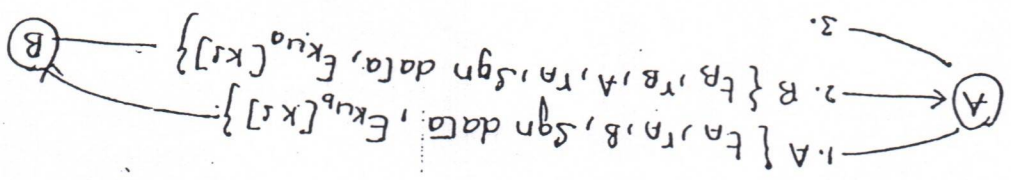 1. A { tA, rA, B, Sgn data, EKUb [Ks] }
2. B { tB, rB, A, rA, Sgn data, EKUa [Ks] }
3.
A
B